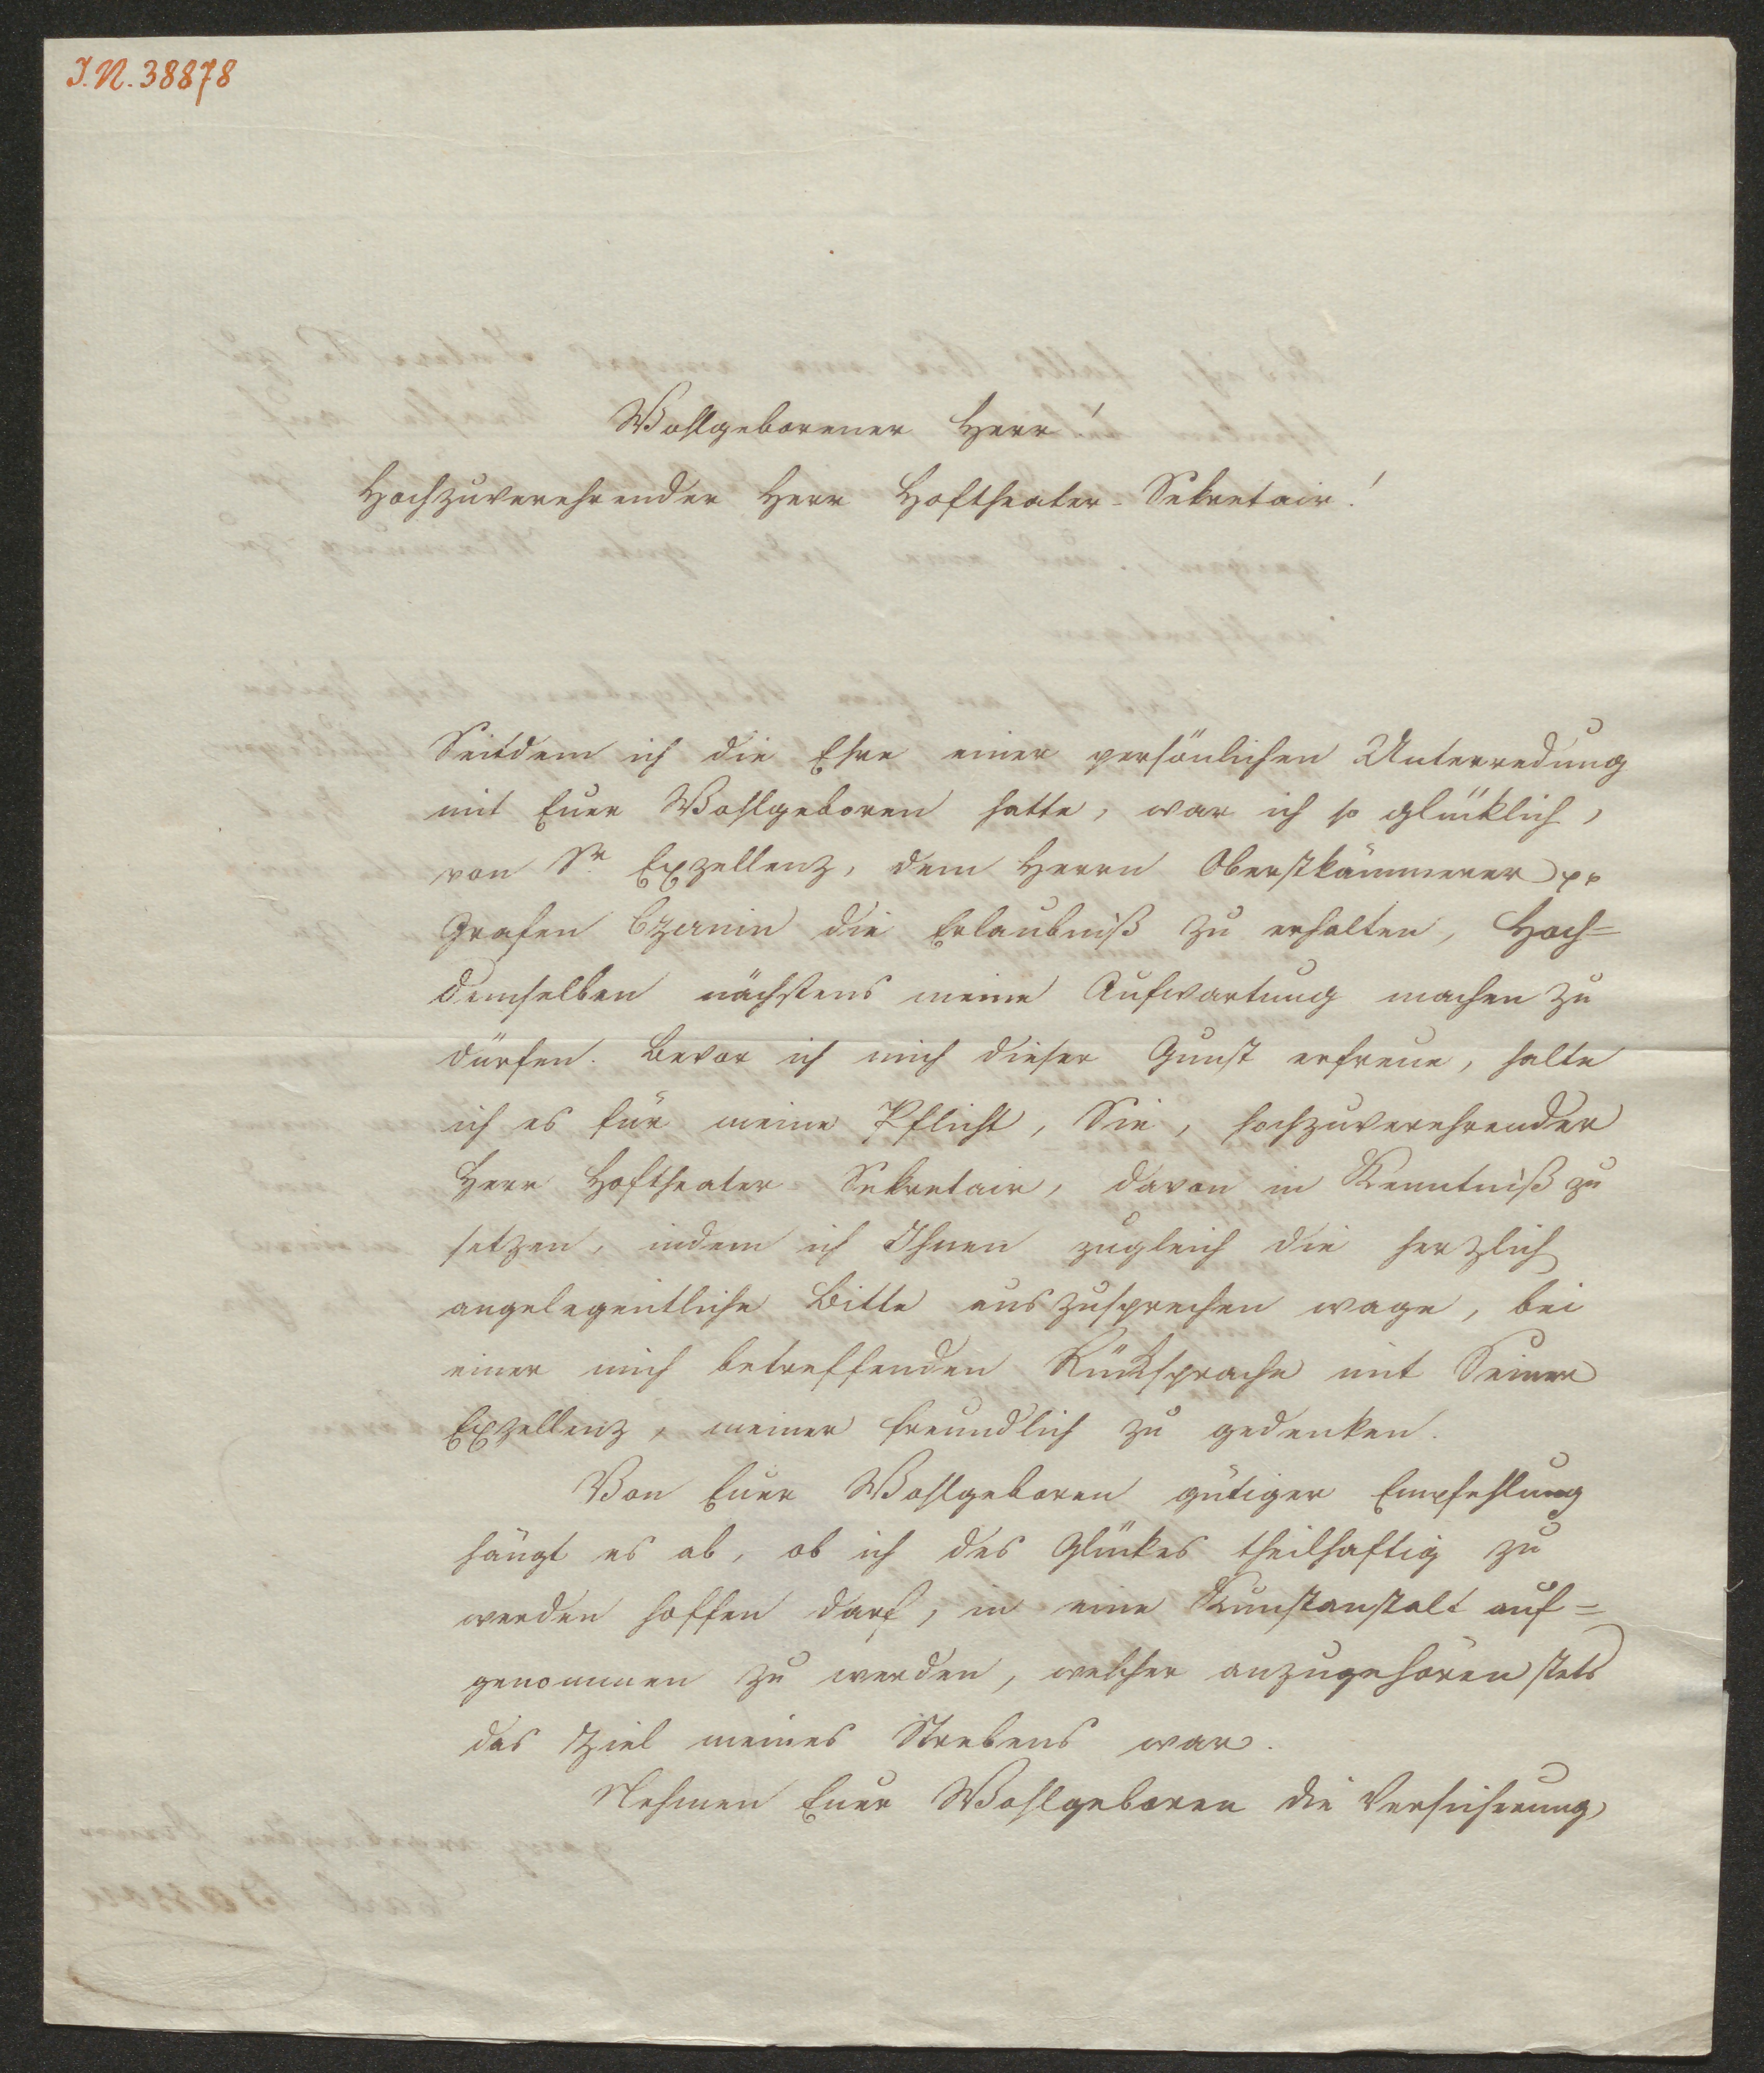 I.N. 38878
Wohlgeborener Herr!
Hochzuverehrender Herr Hoftheater-Sekretair!
Seitdem ich die Ehre einer persönlichen Unterredung
mit Euer Wohlgeboren hatte, war ich so glücklich,
von Sr. Exzellenz, dem Herrn Oberstkämmerer pp
Grafen Czernin die Erlaubniß zu erhalten, Hoch=
demselben nächstens meine Aufwartung machen zu
dürfen. Bevor ich mich dieser Gunst erfreue, halte
ich es für meine Pflicht, Sie, hochzuverehrender
Herr Hoftheater Sekretair, davon in Kenntniß zu
setzen, indem ich Ihnen zugleich die herzlich
angelegentliche Bitte auszusprechen wage, bei
einer mich betreffenden Rücksprache mit Seiner
Exzellenz, meiner freundlich zu gedenken.
Von Euer Wohlgeboren gütiger Empfehlung
hängt es ab, ob ich des Glückes theilhaftig zu
werden hoffen darf, in eine Kunstanstalt auf=
genommen zu werden, welcher anzugehören stets
das Ziel meines Strebens war.
Nehmen Euer Wohlgeboren die Versicherung,